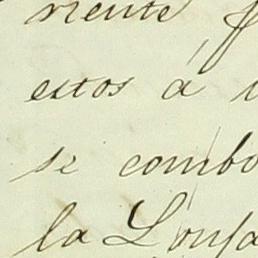 riente
estos á
se combo
la Lonja